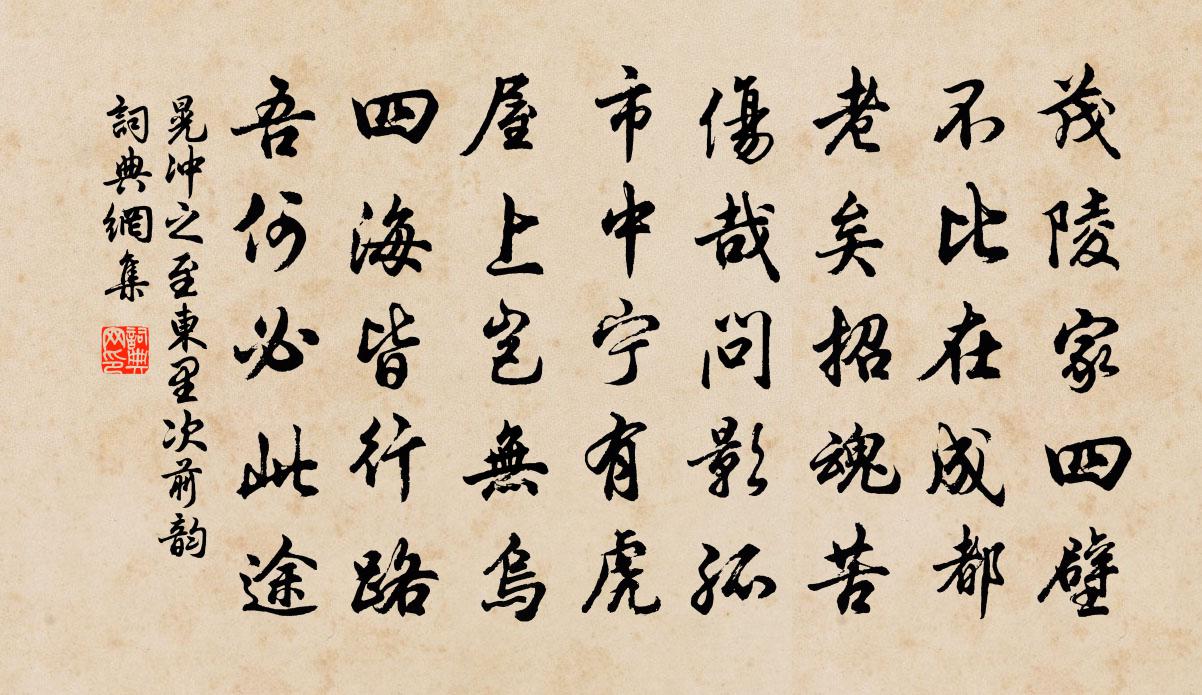 茂陵家四壁
不比在成都
老矣招魂苦
傷哉問影孤
市中宁有虎
屋上岂無烏
四海皆行路
吾何必此途
晁冲之至東里次前韵
詞典網集
詞典
网印